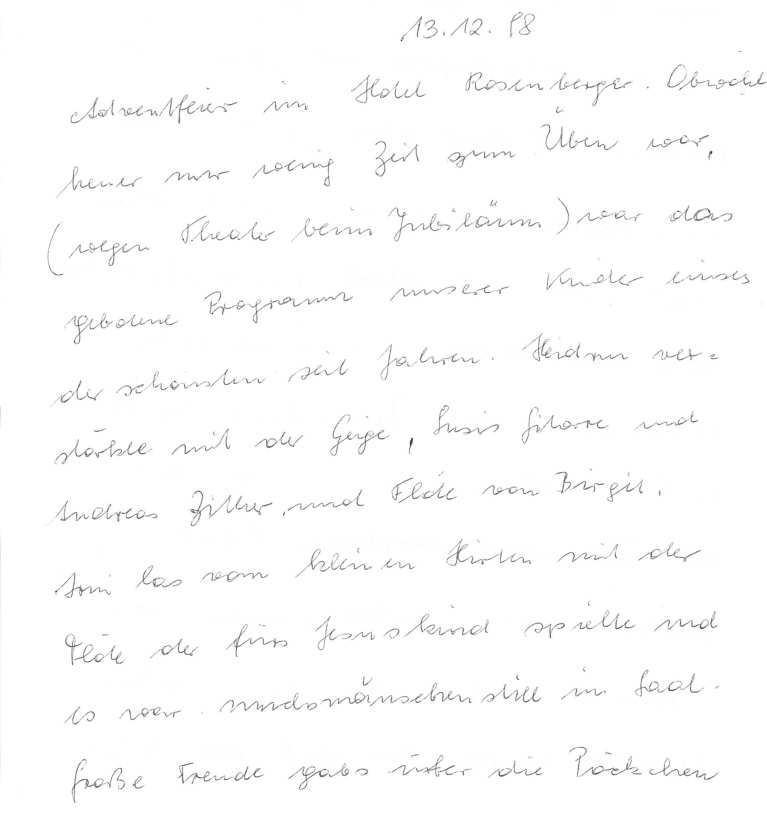 13.12.98
Adventfeier im Hotel Rosenberger. Obwohl
heuer nur wenig Zeit zum Üben war,
(wegen Theater beim Jubiläum) war das
gebotene Programm unserer Kinder eines
der schönsten seit Jahren. Heidrun ver=
stärkte mit der Geige, Susis Gitarre und
Andreas Zither, und Flöte von Birgit.
Toni las vom kleinen Hirten mit der
Flöte der fürs Jesuskind spielte und
es war mucksmäuschenstill im Saal.
Große Freude gabs über die Päckchen